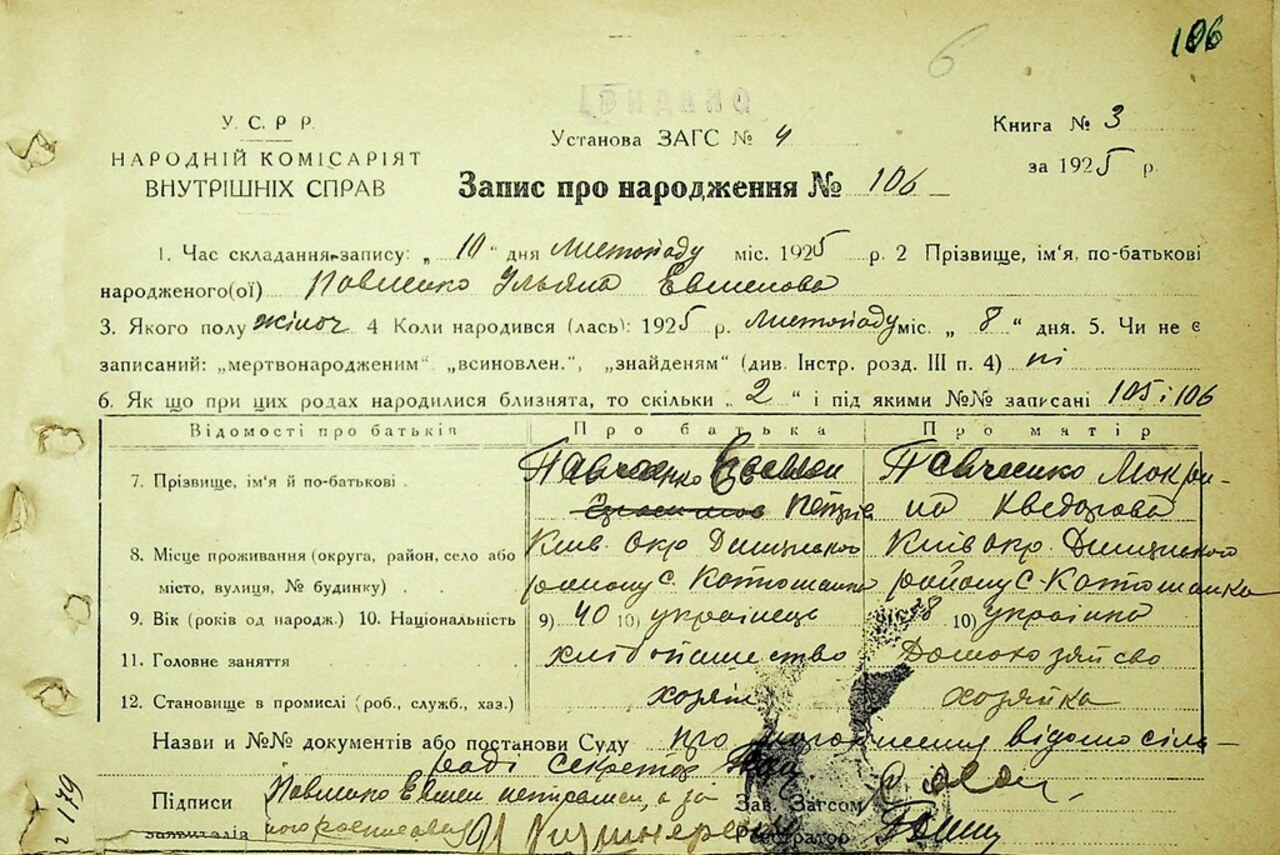 106
6
У. С. Р Р.
НАРОДНІЙ КОМІСАРІЯТ
ВНУТРІШНІХ СПРАВ
Установа ЗАГС № 4
Книга № 3
за 1925 р.
Запис про народження № 106
1. Час складання запису: „ 10 " дня Листопаду міс. 1925 р. 2 Прізвище, ім'я, по-батькові
народженого(ої) Павченко Ульяна Евменова
3. Якого полу жіноч 4 Коли народився (лась): 1925 р. Листопаду міс. „ 8 " дня. 5. Чи не є
записаний: „мертвонародженим" „всиновлен.", „знайденям" (див. Інстр. розд. III п. 4) ні
6. Як що при цих родах народилися близнята, то скільки „ 2 " і під якими №№ записані 105 і 106
Відомості про батьків Про батька Про матір
7. Прізвище, ім'я й по-батькові . Павченко Евмен Павченко Мокри-
Петрів на Кведорова
8. Місце проживання (округа, район, село або Київ. Окр Димирського Київ Окр. Димирського
місто, вулиця, № будинку) . . району С. Катюжанка району С. Катюжанка
9. Вік (років од народж.) 10. Національність 9) 40 10) українець 9) 38 10) українка
11. Головне заняття хлібопашество Домохозяйсво
12. Становище в промислі (роб., служб., хаз.) хозяін хозяйка
Назви и №№ документів або постанови Суду про народження відомо сіль-
раді секретар
Підписи Павченко Евмен неграмен, а за Зав. Загсом
заявителів його росписався Реєстратор
2 179